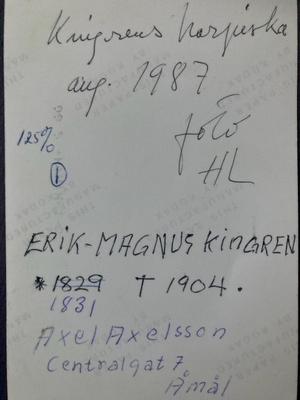 Kingrens harpiska
aug. 1987
foto
HL
125%
1
ERIK-MAGNUS KINGREN
* 1829 † 1904.
1831
Axel Axelsson
Centralgat 7
Åmål